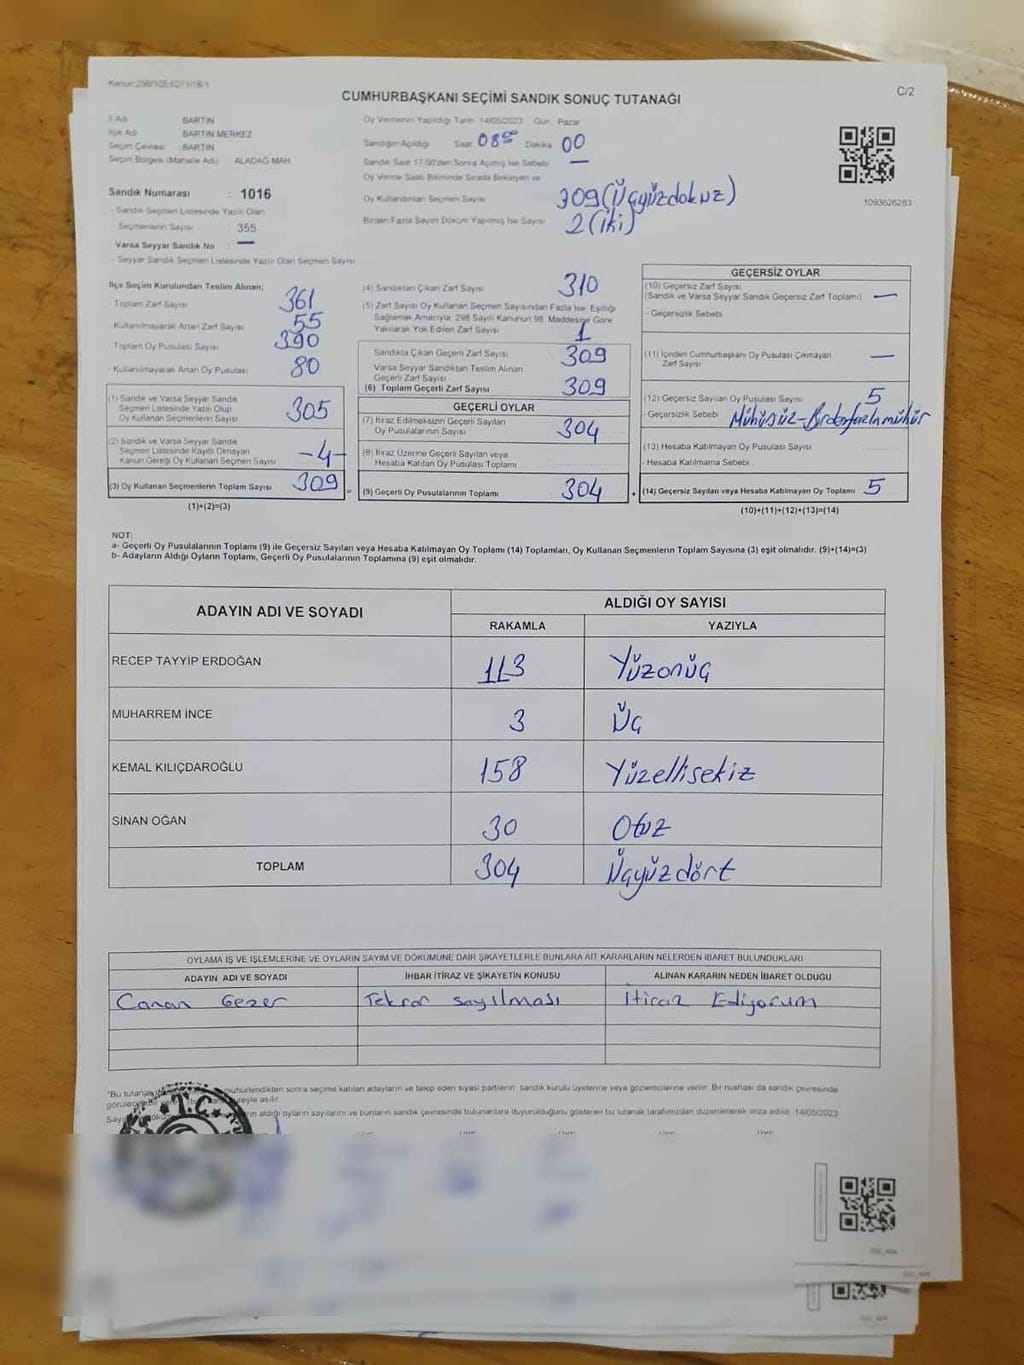 Kanun:298/105,6271/18-1
CUMHURBAŞKANI SEÇİMİ SANDIK SONUÇ TUTANAĞI
C/2
İl Adı : BARTIN
İlçe Adı : BARTIN MERKEZ
Seçim Çevresi : BARTIN
Seçim Bölgesi (Mahalle Adı) : ALADAĞ MAH
Sandık Numarası : 1016
- Sandık Seçmen Listesinde Yazılı Olan
Seçmenlerin Sayısı : 355
Varsa Seyyar Sandık No : —
- Seyyar Sandık Seçmen Listesinde Yazılı Olan Seçmen Sayısı
Oy Vermenin Yapıldığı Tarih 14/05/2023 Gün: Pazar
Sandığın Açıldığı Saat 08 00 Dakika 00
Sandık Saat 17.00'den Sonra Açılmış İse Sebebi —
Oy Verme Saati Bitiminde Sırada Bekleyen ve
Oy Kullandırılan Seçmen Sayısı 309 (Üçyüzdokuz)
Birden Fazla Sayım Döküm Yapılmış İse Sayısı 2 (İki)
1093626263
İlçe Seçim Kurulundan Teslim Alınan;
- Toplam Zarf Sayısı 361
- Kullanılmayarak Artan Zarf Sayısı 55
- Toplam Oy Pusulası Sayısı 390
- Kullanılmayarak Artan Oy Pusulası 80
(1) Sandık ve Varsa Seyyar Sandık
Seçmen Listesinde Yazılı Olup
Oy Kullanan Seçmenlerin Sayısı 305
(2) Sandık ve Varsa Seyyar Sandık
Seçmen Listesinde Kayıtlı Olmayan
Kanun Gereği Oy Kullanan Seçmen Sayısı -4-
(3) Oy Kullanan Seçmenlerin Toplam Sayısı 309
(1)+(2)=(3)
(4) Sandıktan Çıkan Zarf Sayısı 310
(5) Zarf Sayısı Oy Kullanan Seçmen Sayısından Fazla İse, Eşitliği
Sağlamak Amacıyla, 298 Sayılı Kanunun 98. Maddesine Göre
Yakılarak Yok Edilen Zarf Sayısı 1
Sandıkta Çıkan Geçerli Zarf Sayısı 309
Varsa Seyyar Sandıktan Teslim Alınan
Geçerli Zarf Sayısı
(6) Toplam Geçerli Zarf Sayısı 309
GEÇERLİ OYLAR
(7) İtiraz Edilmeksizin Geçerli Sayılan
Oy Pusulalarının Sayısı 304
(8) İtiraz Üzerine Geçerli Sayılan veya
Hesaba Katılan Oy Pusulası Toplamı
= (9) Geçerli Oy Pusulalarının Toplamı 304
GEÇERSİZ OYLAR
(10) Geçersiz Zarf Sayısı
(Sandık ve Varsa Seyyar Sandık Geçersiz Zarf Toplamı) —
- Geçersizlik Sebebi
(11) İçinden Cumhurbaşkanı Oy Pusulası Çıkmayan
Zarf Sayısı —
(12) Geçersiz Sayılan Oy Pusulası Sayısı 5
- Geçersizlik Sebebi Mühürsüz - Birden fazla mühür
(13) Hesaba Katılmayan Oy Pusulası Sayısı
- Hesaba Katılmama Sebebi
+ (14) Geçersiz Sayılan veya Hesaba Katılmayan Oy Toplamı 5
(10)+(11)+(12)+(13)=(14)
NOT:
a- Geçerli Oy Pusulalarının Toplamı (9) ile Geçersiz Sayılan veya Hesaba Katılmayan Oy Toplamı (14) Toplamları, Oy Kullanan Seçmenlerin Toplam Sayısına (3) eşit olmalıdır. (9)+(14)=(3)
b- Adayların Aldığı Oyların Toplamı, Geçerli Oy Pusulalarının Toplamına (9) eşit olmalıdır.
ADAYIN ADI VE SOYADI
ALDIĞI OY SAYISI
RAKAMLA YAZIYLA
RECEP TAYYİP ERDOĞAN 113 Yüzonüç
MUHARREM İNCE 3 Üç
KEMAL KILIÇDAROĞLU 158 Yüzellisekiz
SİNAN OĞAN 30 Otuz
TOPLAM 304 Üçyüzdört
OYLAMA İŞ VE İŞLEMLERİNE VE OYLARIN SAYIM VE DÖKÜMÜNE DAİR ŞİKAYETLERLE BUNLARA AİT KARARLARIN NELERDEN İBARET BULUNDUKLARI
ADAYIN ADI VE SOYADI İHBAR İTİRAZ VE ŞİKAYETİN KONUSU ALINAN KARARIN NEDEN İBARET OLDUĞU
Canan Gezer Tekrar sayılması İtiraz Ediyorum
*Bu tutanak mühürlendikten sonra seçime katılan adayların ve talep eden siyasi partilerin sandık kurulu üyelerine veya gözlemcilerine verilir. Bir nüshası da sandık çevresinde
süreyle asılır.
aldığı oyların sayılarını ve bunların sandık çevresinde bulunanlara duyurulduğunu gösteren bu tutanak tarafımızdan düzenlenerek imza edildi. 14/05/2023
T.C.